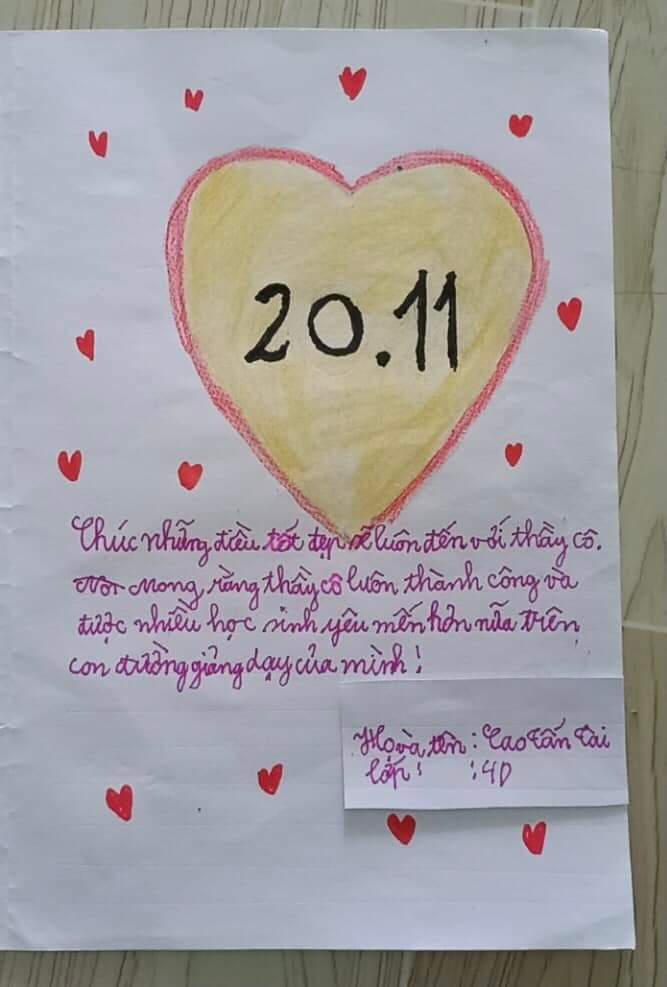 20.11
Chúc những điều tốt đẹp sẽ luôn đến với thầy cô.
Mong rằng thầy cô luôn thành công và
được nhiều học sinh yêu mến hơn nữa trên
con đường giảng dạy của mình!
Họ và tên : Cao Tấn Tài
lớp : 4D